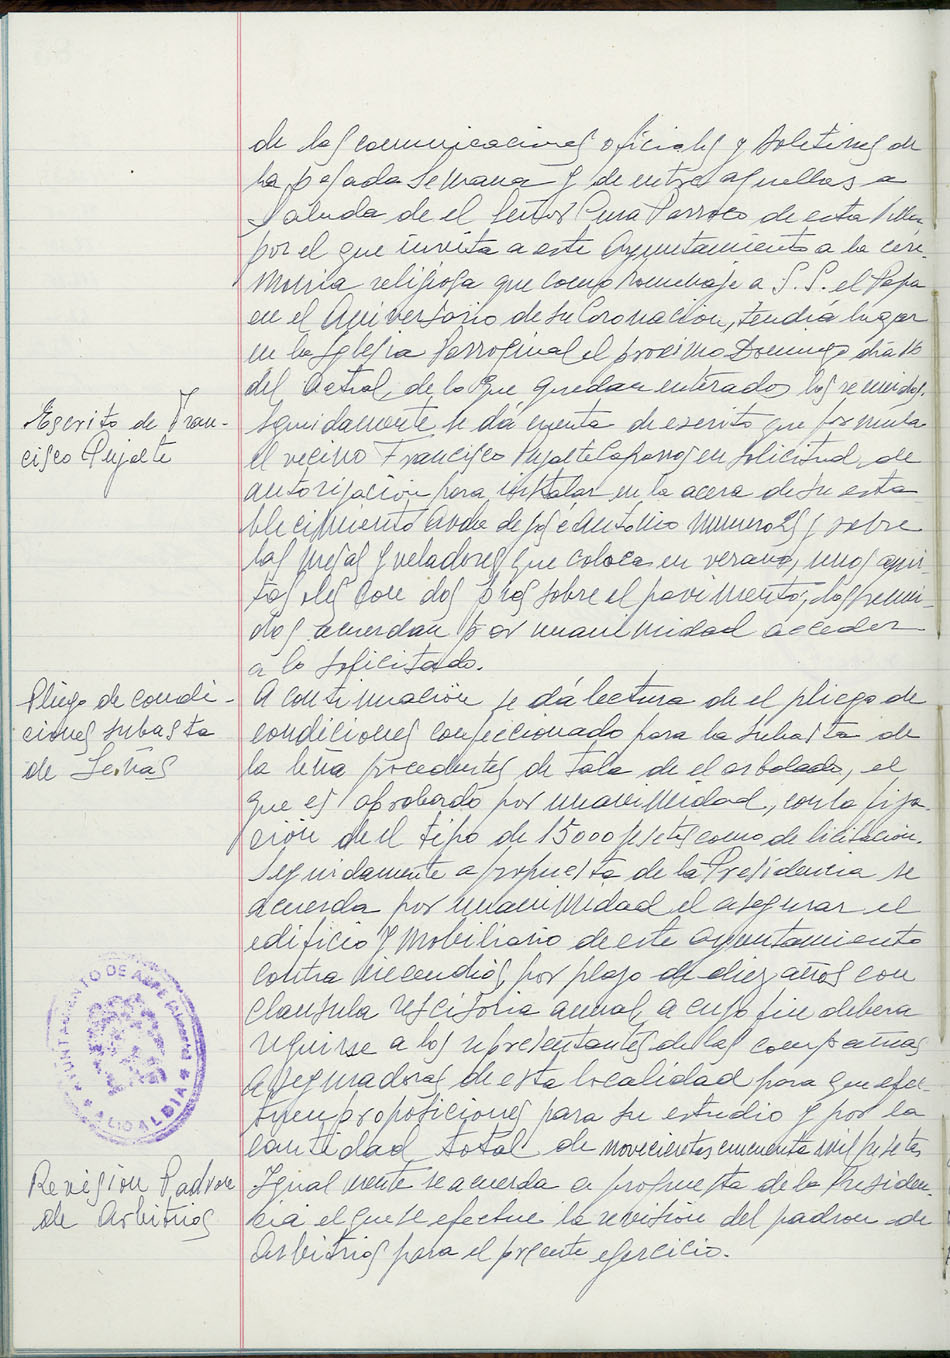 de las comunicaciones oficiales y boletines de
la pasada Semana y de entre aquellas a
Saluda de el Señor Cura Parroco de esta Villa
por el que invita a este Ayuntamiento a la cere-
monia religiosa que como homenaje a S.S. el Papa
en el Aniversario de su Coronacion, tendrá lugar
en la Iglesia Parroquial el proximo Domingo dia 16
del actual, de lo que quedan enterados los reunidos.
Escrito de Fran-
cisco Pujalte
Seguidamente se dá cuenta de escrito que formula
el vecino Francisco Pujalte Caparros en solicitud de
autorización para instalar en la acera de su esta
blecimiento Avda de José Antonio numero 25 y sobre
las mesas y veladores que coloca en verano, unos
con dos pies sobre el pavimento; los reuni-
dos acuerdan por unanimidad acceder
a lo solicitado.
Pliego de condi-
ciones subasta
de Leñas
A continuación se dá lectura de el pliego de
condiciones confeccionado para la subasta de
la leña procedentes de tala de el arbolado, el
que es aprobado por unanimidad, con la fija-
ción de el tipo de 15000 pesetas como de licitacion.
Seguidamente a propuesta de la Presidencia se
acuerda por unanimidad el asegurar el
edificio y mobiliario de este ayuntamiento
contra incendios, por plazo de diez años con
clausula rescisoria anual, a cuyo fin debera
a los representantes de las compañias
aseguradoras de esta localidad para que efec-
tuen proposiciones para su estudio y por la
cantidad total de novecientas cincuenta mil pesetas
AYUNTAMIENTO DE
ALCALDIA
Revision Padron
de Arbitrios
Igualmente se acuerda a propuesta de la Presiden-
cia el que se efectue la revisión del padron de
Arbitrios para el presente ejercicio.